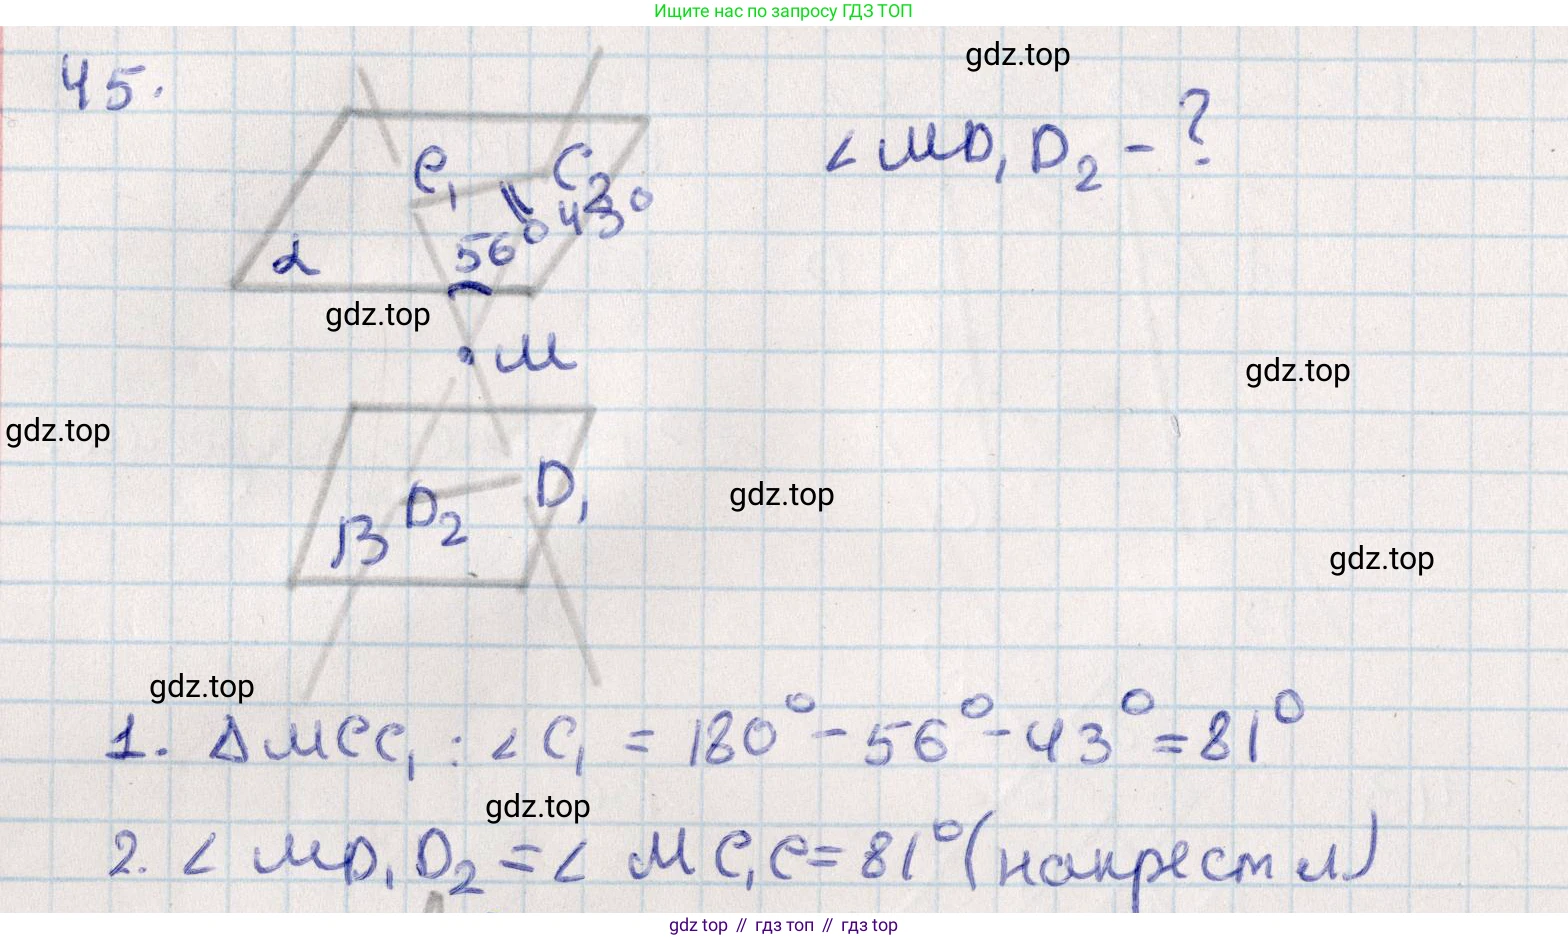 Ищите нас по запросу ГДЗ ТОП
gdz.top
45.
∠MD₁D₂ - ?
C₁ C₂
56° 43°
α
gdz.top
M
gdz.top
gdz.top
D₁
gdz.top
β D₂
gdz.top
gdz.top
1. ΔMCC₁ : ∠C₁ = 180° - 56° - 43° = 81°
gdz.top
2. ∠MD₁D₂ = ∠MC₁C = 81° (накрест л)
gdz top // гдз топ // gdz.top